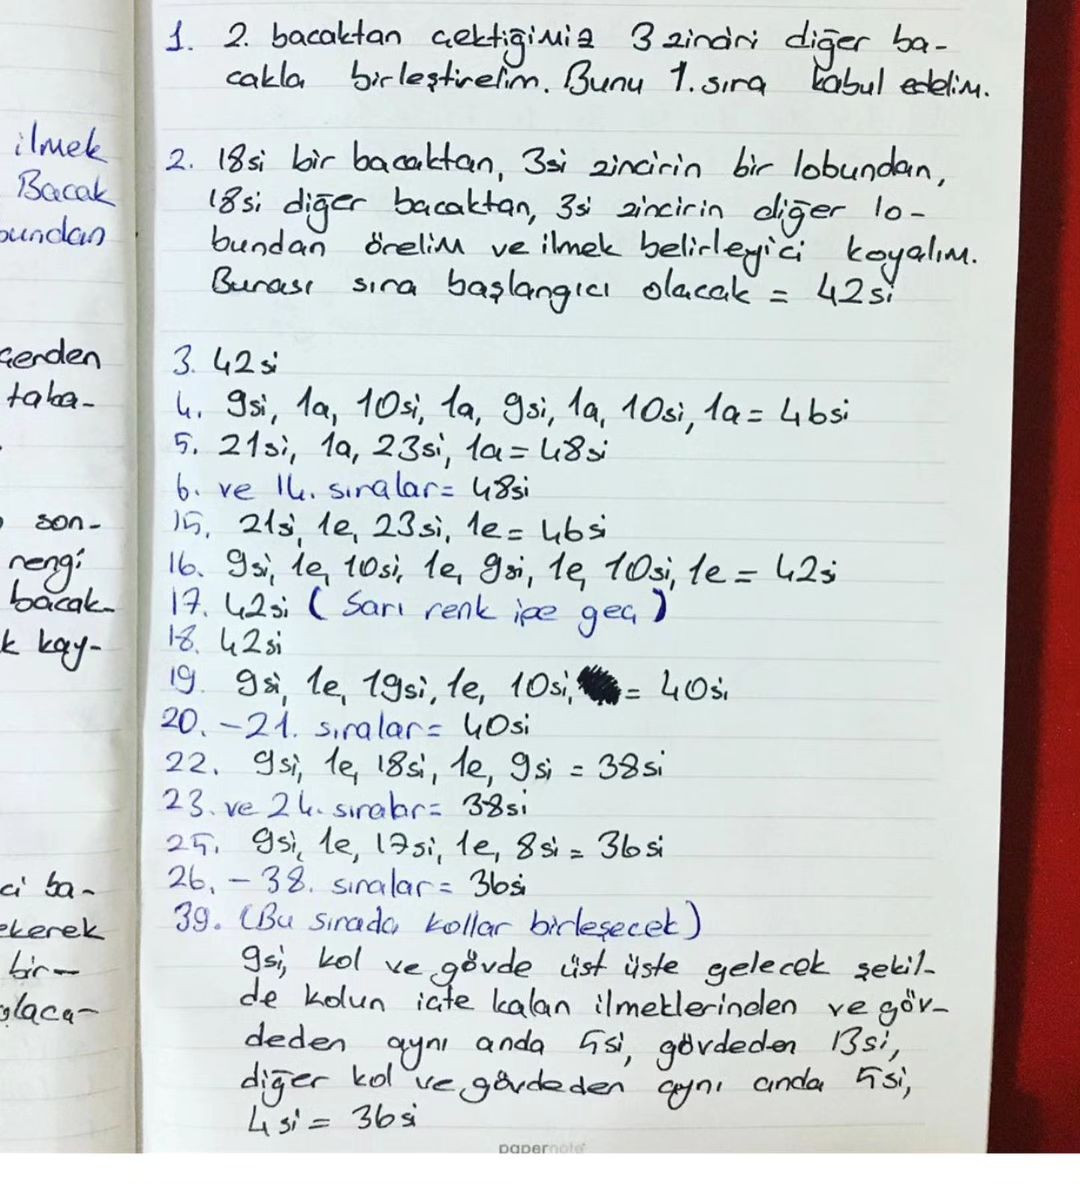 ilmek
Bacak
bundan
içerden
taba-
son-
rengi
bacak-
k kay-
ci ba-
ekerek
bir-
olaca-
1. 2. bacaktan çektiğimiz 3 zinciri diğer ba-
cakla birleştirelim. Bunu 1. sıra kabul edelim.
2. 18si bir bacaktan, 3si zincirin bir lobundan,
18si diğer bacaktan, 3si zincirin diğer lo-
bundan örelim ve ilmek belirleyici koyalım.
Burası sıra başlangıcı olacak = 42si
3. 42si
4. 9si, 1a, 10si, 1a, 9si, 1a, 10si, 1a = 46si
5. 21si, 1a, 23si, 1a = 48si
6. ve 14. sıralar = 48si
15. 21si, 1e, 23si, 1e = 46si
16. 9si, 1e, 10si, 1e, 9si, 1e, 10si, 1e = 42si
17. 42si (Sarı renk ipe geç)
18. 42si
19. 9si, 1e, 19si, 1e, 10si, = 40si
20. - 21. sıralar = 40si
22. 9si, 1e, 18si, 1e, 9si = 38si
23. ve 24. sıralar = 38si
25. 9si, 1e, 17si, 1e, 8si = 36si
26. - 38. sıralar = 36si
39. (Bu sırada kollar birleşecek)
9si, kol ve gövde üst üste gelecek şekil-
de kolun içte kalan ilmeklerinden ve göv-
deden aynı anda 5si, gövdeden 13si,
diğer kol ve gövdeden aynı anda 5si,
4si = 36si
papernote